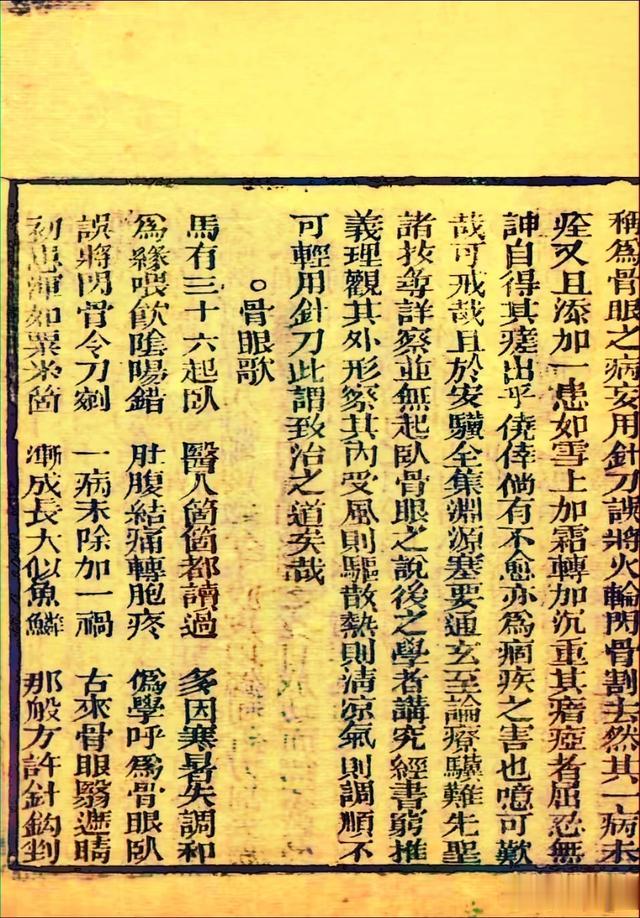 稱爲骨眼之病妄用針刀誤將火輪閃骨割去然其一病未
痊又且添加一患如雪上加霜轉加沉重其瘖瘂者屈忍無
訷自得其瘥出乎僥倖倘有不愈亦爲痼疾之害也噫可歎
哉可戒哉且於安驥全集淵源塞要通玄至論療驥難先聖
諸技等詳察並無起臥骨眼之說後之學者講究經書窮推
義理觀其外形察其內受風則驅散熱則清凉氣則調順不
可輕用針刀此謂致治之道矣哉
○骨眼歌
馬有三十六起臥 醫人箇箇都讀過 多因寒暑失調和
爲緣喂飮陰陽錯 肚腹結痛轉胞疼 僞學呼爲骨眼臥
誤將閃骨令刀剜 一病未除加一禍 古來骨眼翳遮睛
初患渾如粟米箇 漸成長大似魚鱗 那般方許針鈎